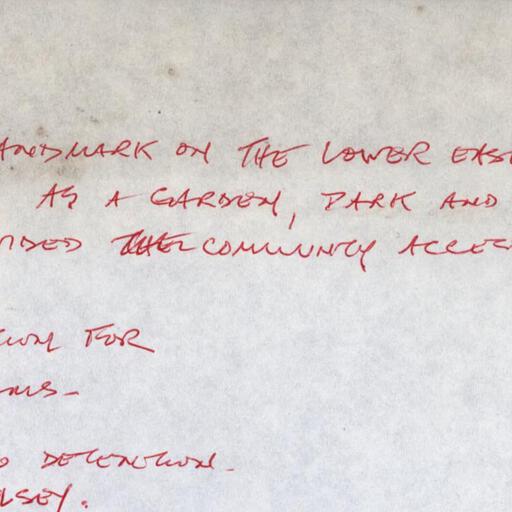 ANDMARK ON THE LOWER EAS
AS A GARDEN, PARK AND
VIDED THE COMMUNITY ACCES
FOR
O DETENTION.
LSEY.